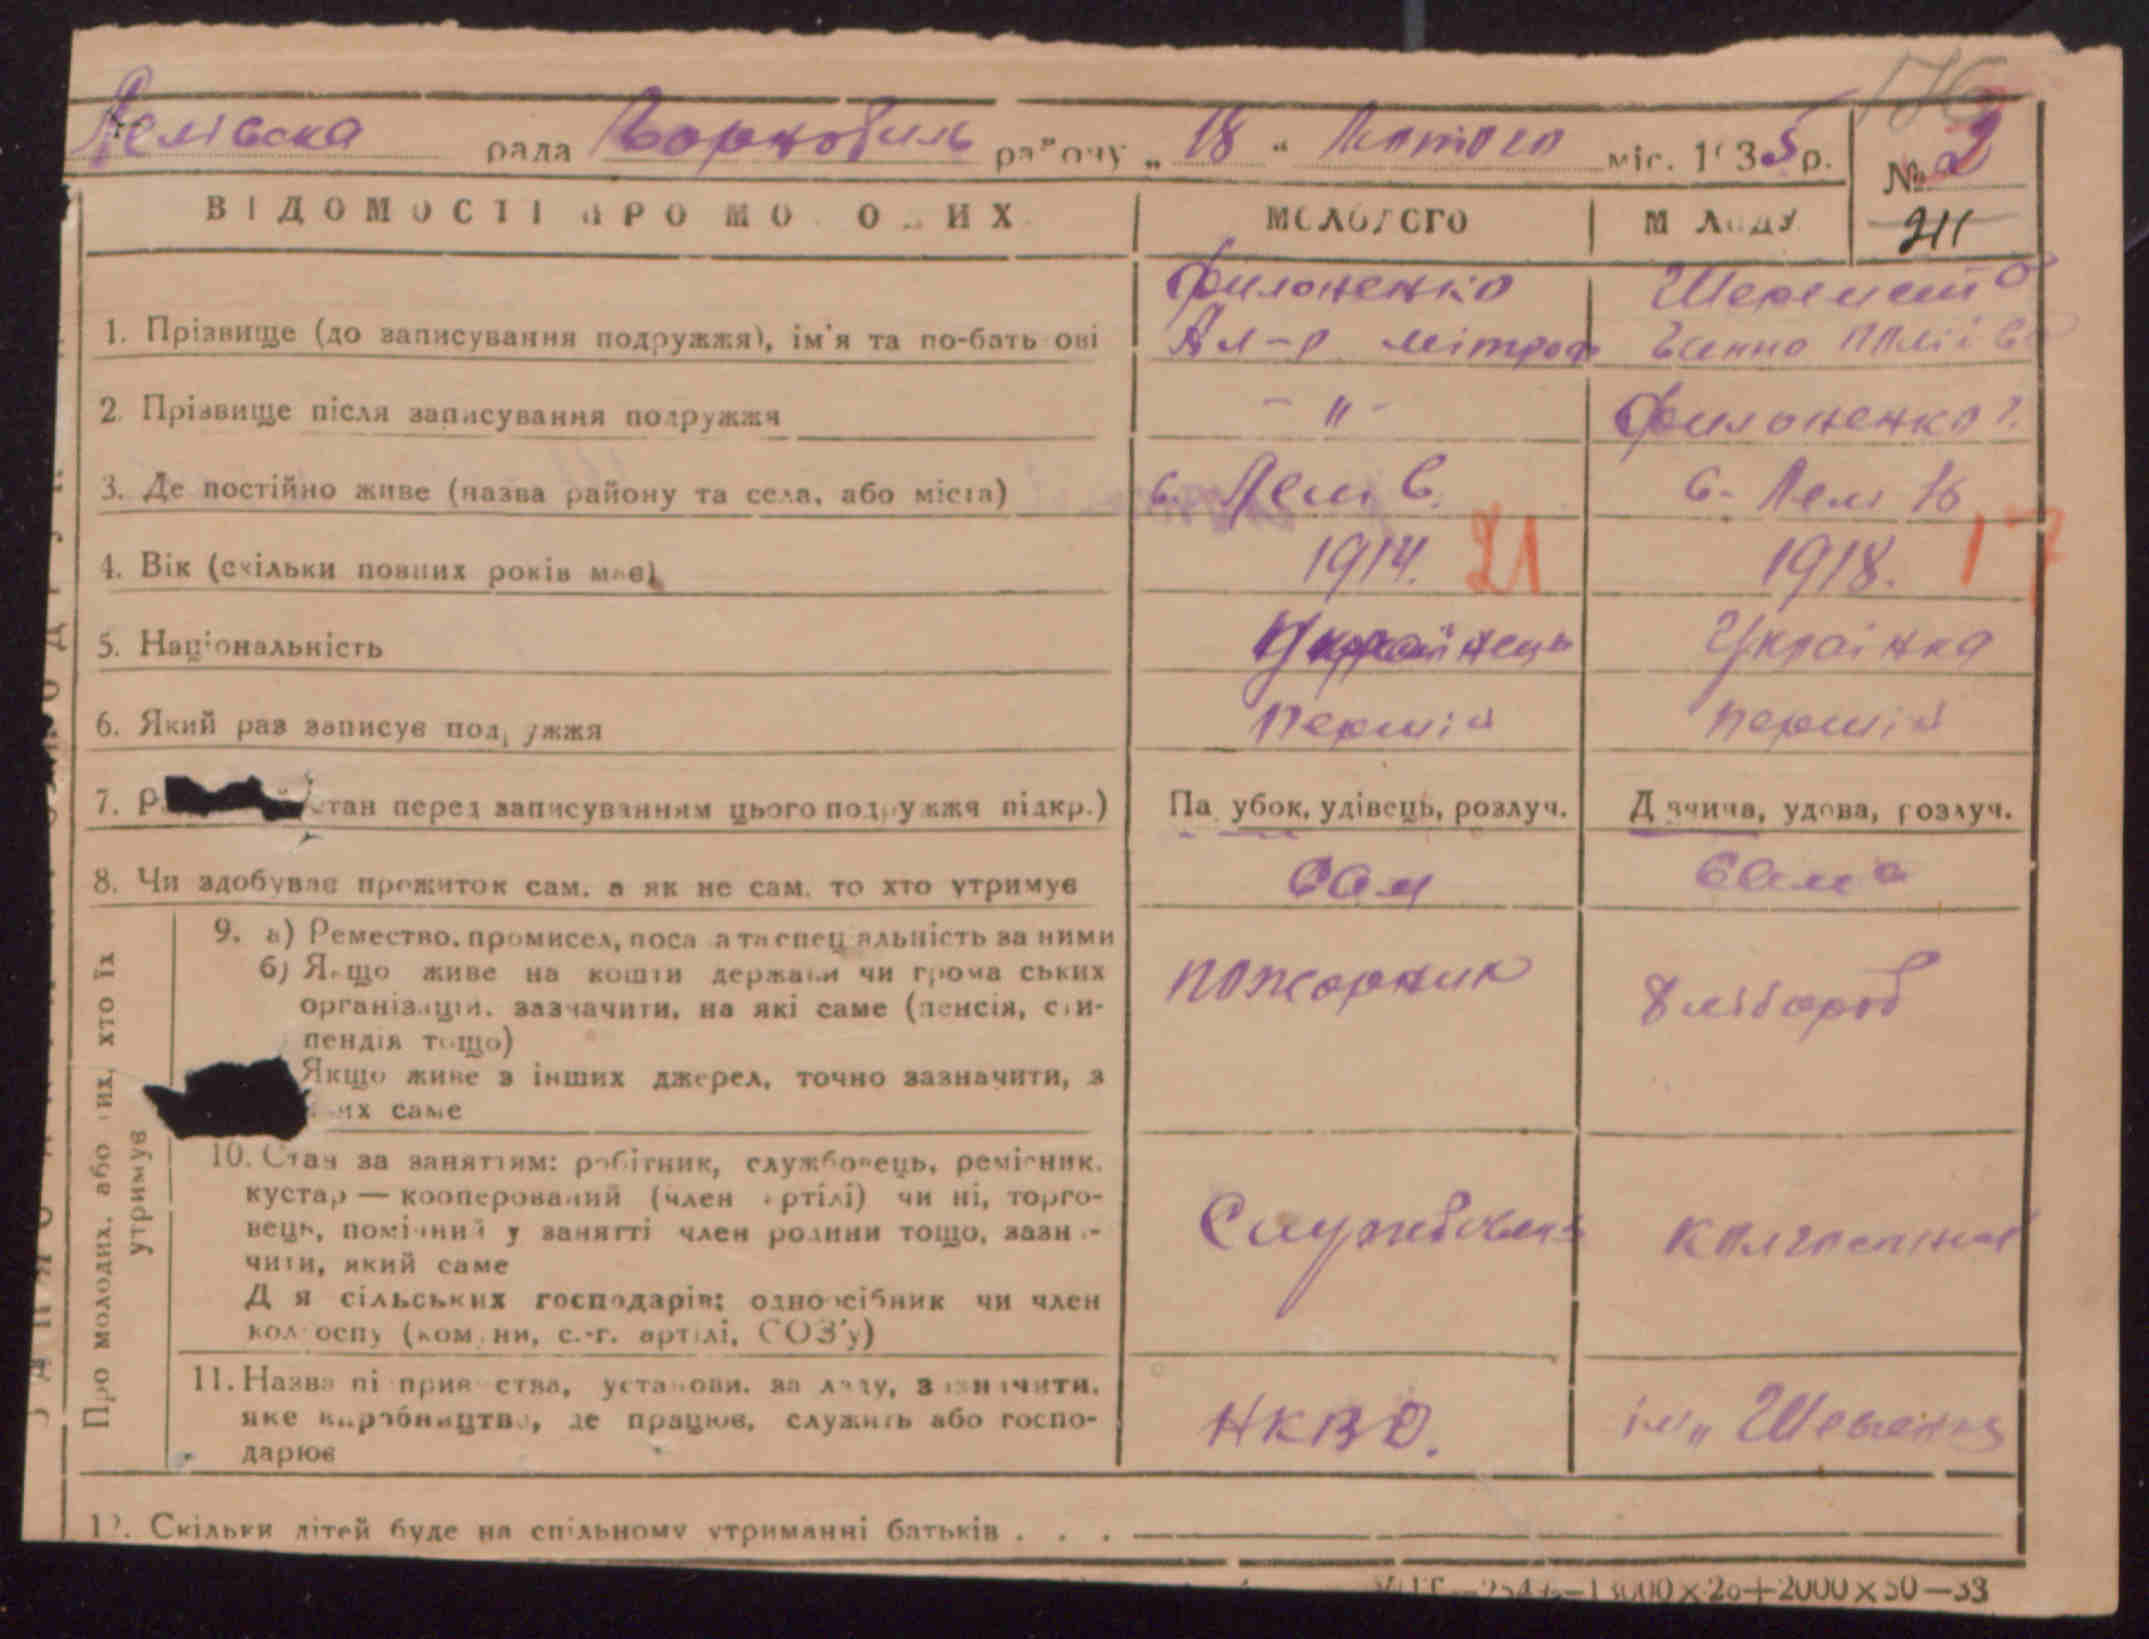 176
Лелівська рада Чорнобиль району „ 18 “ Лютого міс. 1935 р. № 2
ВІДОМОСТІ ПРО МОЛОДИХ МОЛОДОГО МОЛОДУ 211
Филоненко Шеремет
1. Прізвище (до записування подружжя), ім'я та по-батькові Ал-р Мітроф Ганна
2. Прізвище після записування подружжя - „ - Филоненко
3. Де постійно живе (назва району та села, або міста) с. Лелів с. Лелів
4. Вік (скільки повних років має) 1914. 21 1918. 17
5. Національність Українець Українка
6. Який раз записує подружжя Перший Перший
7. стан перед записуванням цього подружжя підкр.) Парубок, удівець, розлуч. Дівчина, удова, розлуч.
8. Чи здобуває прожиток сам, а як не сам, то хто утримує Сам Сама
Про молодих, або тих, хто їх утримує
9. а) Ремество, промисел, посада та спеціяльність за ними
б) Якщо живе на кошти держави чи громадських Пожарник Хлібороб
організацій, зазначити, на які саме (пенсія, сти-
пендія тощо)
Якщо живе з інших джерел, точно зазначити, з
яких саме
10. Стан за заняттям: робітник, службовець, ремісник,
кустар — кооперований (член артілі) чи ні, торго-
вець, помічний у занятті член родини тощо, зазна-
чити, який саме Службовець Колгоспниця
Для сільських господарів: одноосібник чи член
колгоспу (комуни, с.-г. артілі, СОЗ'у)
11. Назва підприємства, установи, закладу, зазначити,
яке виробництво, де працює, служить або госпо- НКВД. ім „ Шевченка
дарює
12. Скільки дітей буде на спільному утриманні батьків . . .
2000 х 50—33